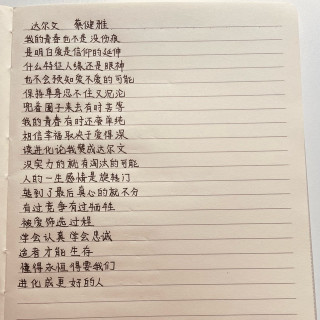 达尔文 蔡健雅
我的青春也不是没伤痕
是明白爱是信仰的延伸
什么特征人缘还是眼神
也不会预知爱不爱的可能
保持单身忍不住又沉沦
兜着圈子来去有时苦等
我的青春有时还蛮单纯
相信幸福取决于爱得深
读进化论我赞成达尔文
没实力的就有淘汰的可能
人的一生感情是旋转门
转到了最后真心的就不分
有过竞争有过牺牲
被爱筛选过程
学会认真学会忠诚
适者才能生存
懂得永恒得要我们
进化成更好的人